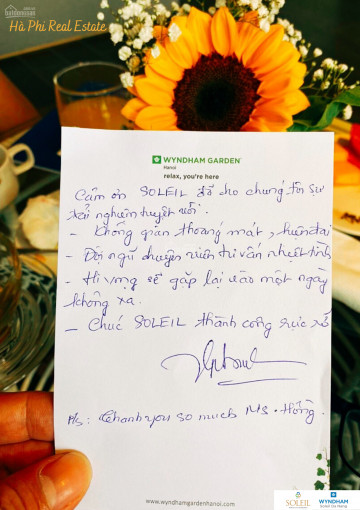 batdongsan
Hà Phi Real Estate
WYNDHAM GARDEN
Hanoi
relax, you're here
Cảm ơn SOLEIL đã cho chúng tôi sự
trải nghiệm tuyệt vời.
- Không gian thoáng mát, hiện đại
- Đội ngũ chuyên viên tư vấn nhiệt tình
- Hi vọng sẽ gặp lại vào một ngày
không xa.
- Chúc SOLEIL thành công rực rỡ
P/s: Thank you so much Ms. Hồng.
www.wyndhamgardenhanoi.com
SOLEIL
WYNDHAM
Soleil Da Nang